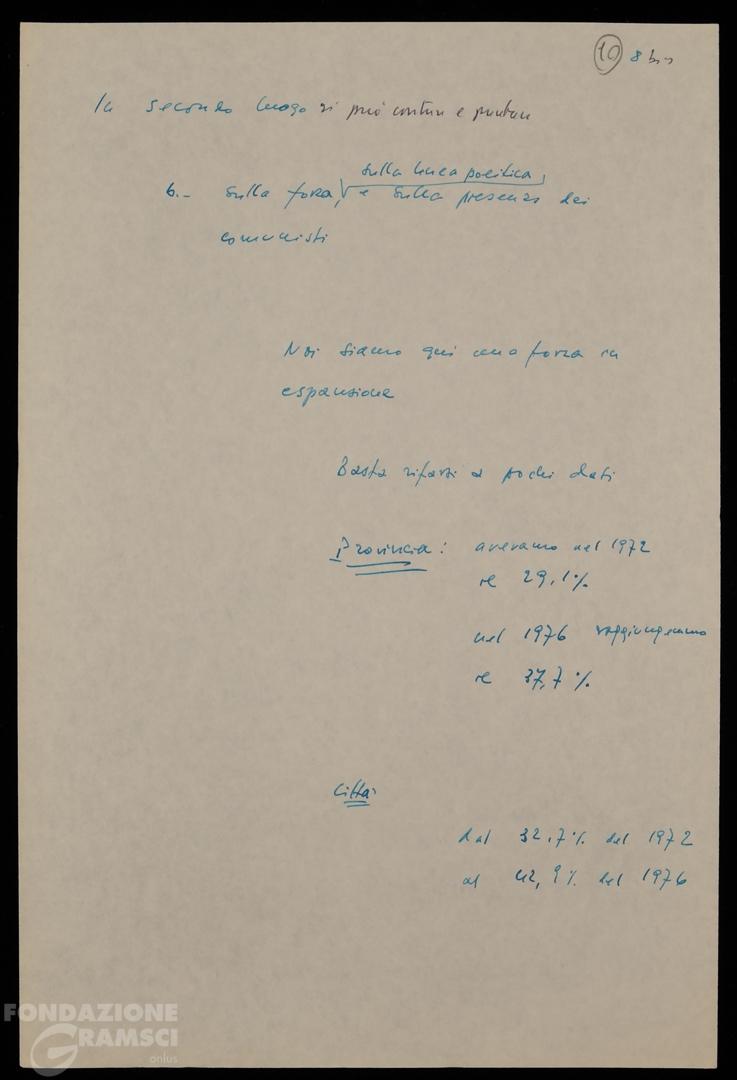 10 8 bis
In secondo luogo si può contare e puntare
sulla linea politica,
b.- Sulla forza, e sulla presenza dei
comunisti
Noi siamo qui una forza in
espansione
Basta rifarsi a pochi dati
Provincia: avevamo nel 1972
il 29,1%
nel 1976 raggiungemmo
il 37,7%
Città:
dal 32,7% del 1972
al 42,9% del 1976
FONDAZIONE
GRAMSCI
onlus